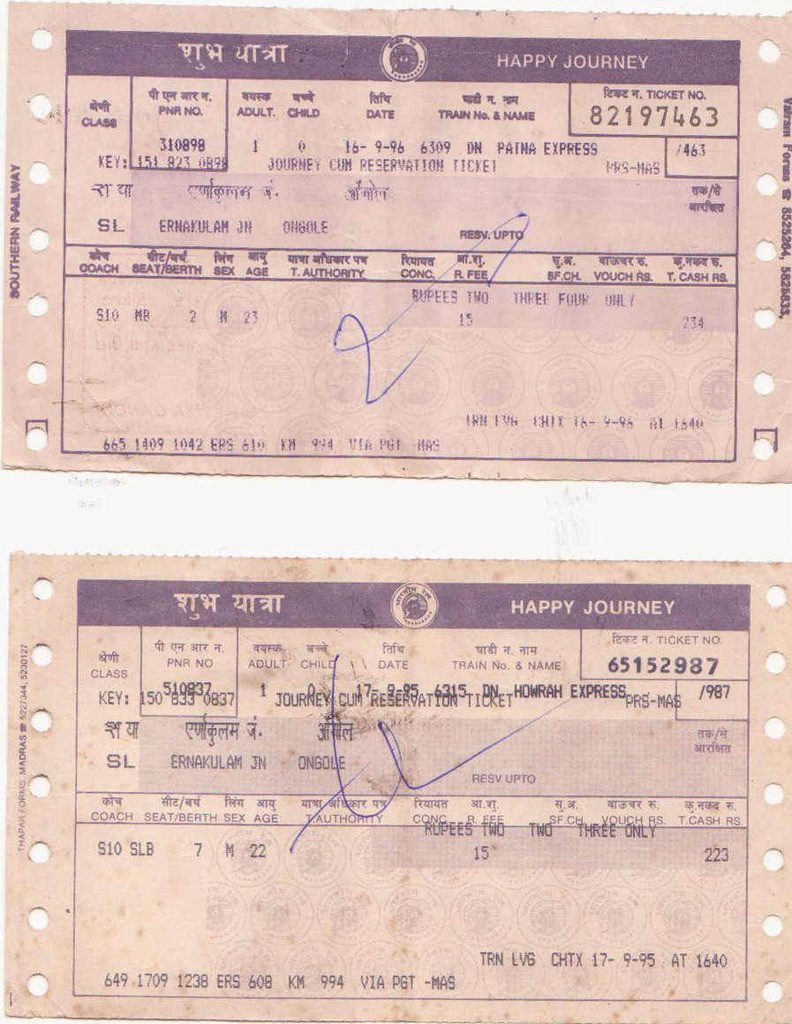 शुभ यात्रा HAPPY JOURNEY
श्रेणी पी एन आर न. वयस्क बच्चे तिथि गाडी न. नाम टिकट न. TICKET NO.
CLASS PNR NO. ADULT. CHILD DATE TRAIN No. & NAME 82197463
310898 1 0 16- 9-96 6309 DN PATNA EXPRESS /463
KEY: 151 823 0898 JOURNEY CUM RESERVATION TICKET PRS-MAS
श या एर्णाकुलम जं. ओंगोल तक/से
आरक्षित
SL ERNAKULAM JN ONGOLE RESV. UPTO
कोच सीट/बर्थ लिंग आयु यात्रा अधिकार पत्र रियायत आ.शु. सु.अ. वाऊचर रु. कु.नकद रु.
COACH SEAT/BERTH SEX AGE T. AUTHORITY CONC. R. FEE SF.CH. VOUCH RS. T. CASH RS.
RUPEES TWO THREE FOUR ONLY
S10 MB 2 M 23 15 234
TRN LVG CHTX 16- 9-96 AT 1640
665 1409 1042 ERS 610 KM 994 VIA PGT MAS
SOUTHERN RAILWAY
शुभ यात्रा HAPPY JOURNEY
श्रेणी पी एन आर न. वयस्क बच्चे तिथि गाडी न. नाम टिकट न. TICKET NO.
CLASS PNR NO ADULT CHILD DATE TRAIN No. & NAME 65152987
510837 1 0 17- 9-95 6315 DN HOWRAH EXPRESS /987
KEY: 150 833 0837 JOURNEY CUM RESERVATION TICKET PRS-MAS
श या एर्णाकुलम जं. ओंगोल तक/से
आरक्षित
SL ERNAKULAM JN ONGOLE RESV UPTO
कोच सीट/बर्थ लिंग आयु यात्रा अधिकार पत्र रियायत आ.शु. सु.अ. वाऊचर रु. कु.नकद रु.
COACH SEAT/BERTH SEX AGE T.AUTHORITY CONC. R. FEE SF.CH. VOUCH RS. T.CASH RS.
RUPEES TWO TWO THREE ONLY
S10 SLB 7 M 22 15 223
TRN LVG CHTX 17- 9-95 AT 1640
649 1709 1238 ERS 608 KM 994 VIA PGT -MAS
THAPAR FORMS, MADRAS ☎ 5227344, 5230127